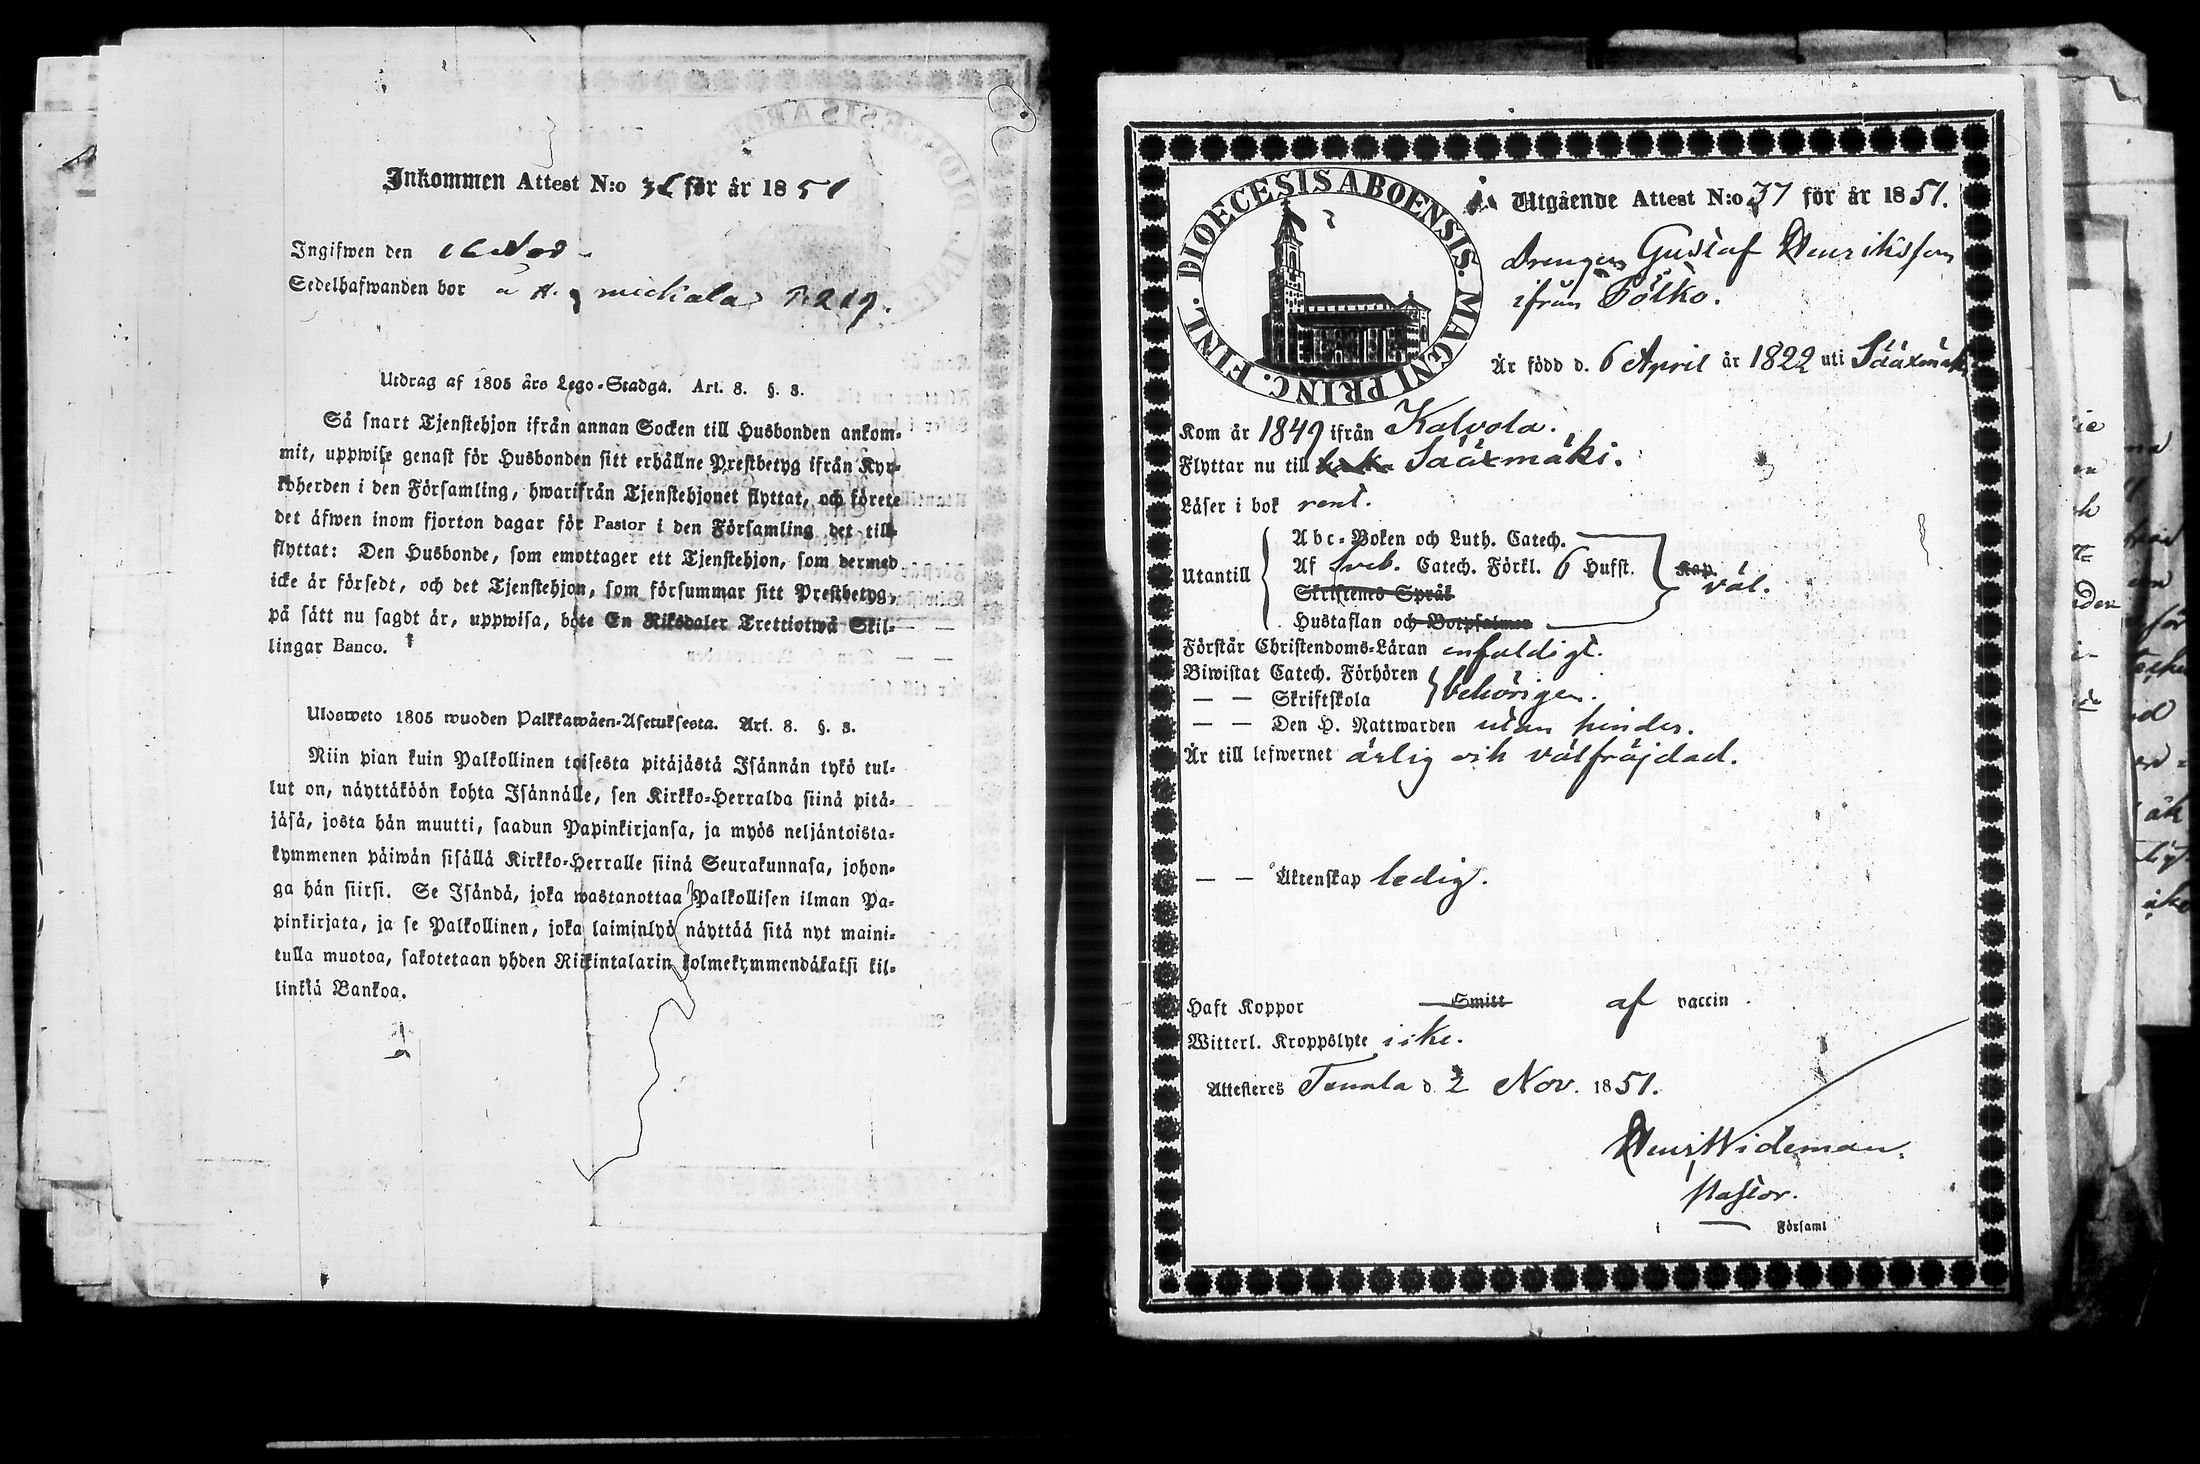 Inkommen Attest N:o 36 för år 1851
Ingifwen den 16 Nov
Sedelhafwanden bor å H. mickala P. 219.
Utdrag af 1805 års Lego-Stadga. Art. 8. §. 3.
Så snart Tjenstehjon ifrån annan Socken till Husbonden ankom-
mit, uppwise genast för Husbonden sitt erhållne Prestbetyg ifrån Kyr-
koherden i den Församling, hwarifrån Tjenstehjonet flyttat, och förete
det äfwen inom fjorton dagar för Pastor i den Församling det till-
flyttat: Den Husbonde, som emottager ett Tjenstehjon, som dermed
icke är försedt, och det Tjenstehjon, som försummar sitt Prestbetyg,
på sätt nu sagdt är, uppwisa, böte En Riksdaler Trettiotwå Skil-
lingar Banco.
Ulosweto 1805 wuoden Palkkawäen-Asetuksesta. Art. 8. §. 3.
Niin pian kuin Palkollinen toisesta pitäjästä Isännän tykö tul-
lut on, näyttäköön kohta Isännälle, sen Kirkko-Herralda siinä pitä-
jäsä, josta hän muutti, saadun Papinkirjansa, ja myös neljäntoista-
kymmenen päiwän sisällä Kirkko-Herralle siinä Seurakunnasa, johon-
ga hän siirsi. Se Isändä, joka wastanottaa Palkollisen ilman Pa-
pinkirjata, ja se Palkollinen, joka laiminlyö näyttää sitä nyt maini-
tulla muotoa, sakotetaan yhden Riikintalarin kolmekymmendäkaksi kil-
linkiä Bankoa.
DIOECESIS ABOENSIS. MAGNI PRINC. FINL.
Utgående Attest N:o 37 för år 1851.
Drengen Gustaf Henriksson
ifrån Pölko.
Är född d. 6 April år 1822 uti Sääxmäki
Kom år 1849 ifrån Kalvola.
Flyttar nu till Sääxmäki.
Läser i bok rent.
Utantill
Abc-Boken och Luth. Catech.
Af Sveb. Catech. Förkl. 6 Hufst. Kap. väl.
Skriftenes Språk
Hustaflan och Botpsalmer
Förstår Christendoms-Läran enfaldigt.
Biwistat Catech. Förhören
— — Skriftskola behörigen.
— — Den H. Nattwarden utan hinder.
Är till lefwernet ärlig och välfräjdad.
— — Äktenskap ledig.
Haft Koppor Smitt af vaccin
Witterl. Kroppslyte icke.
Attesteres Tenala d. 2 Nov. 1851.
Henr. Wideman.
Pastor.
i — Församl